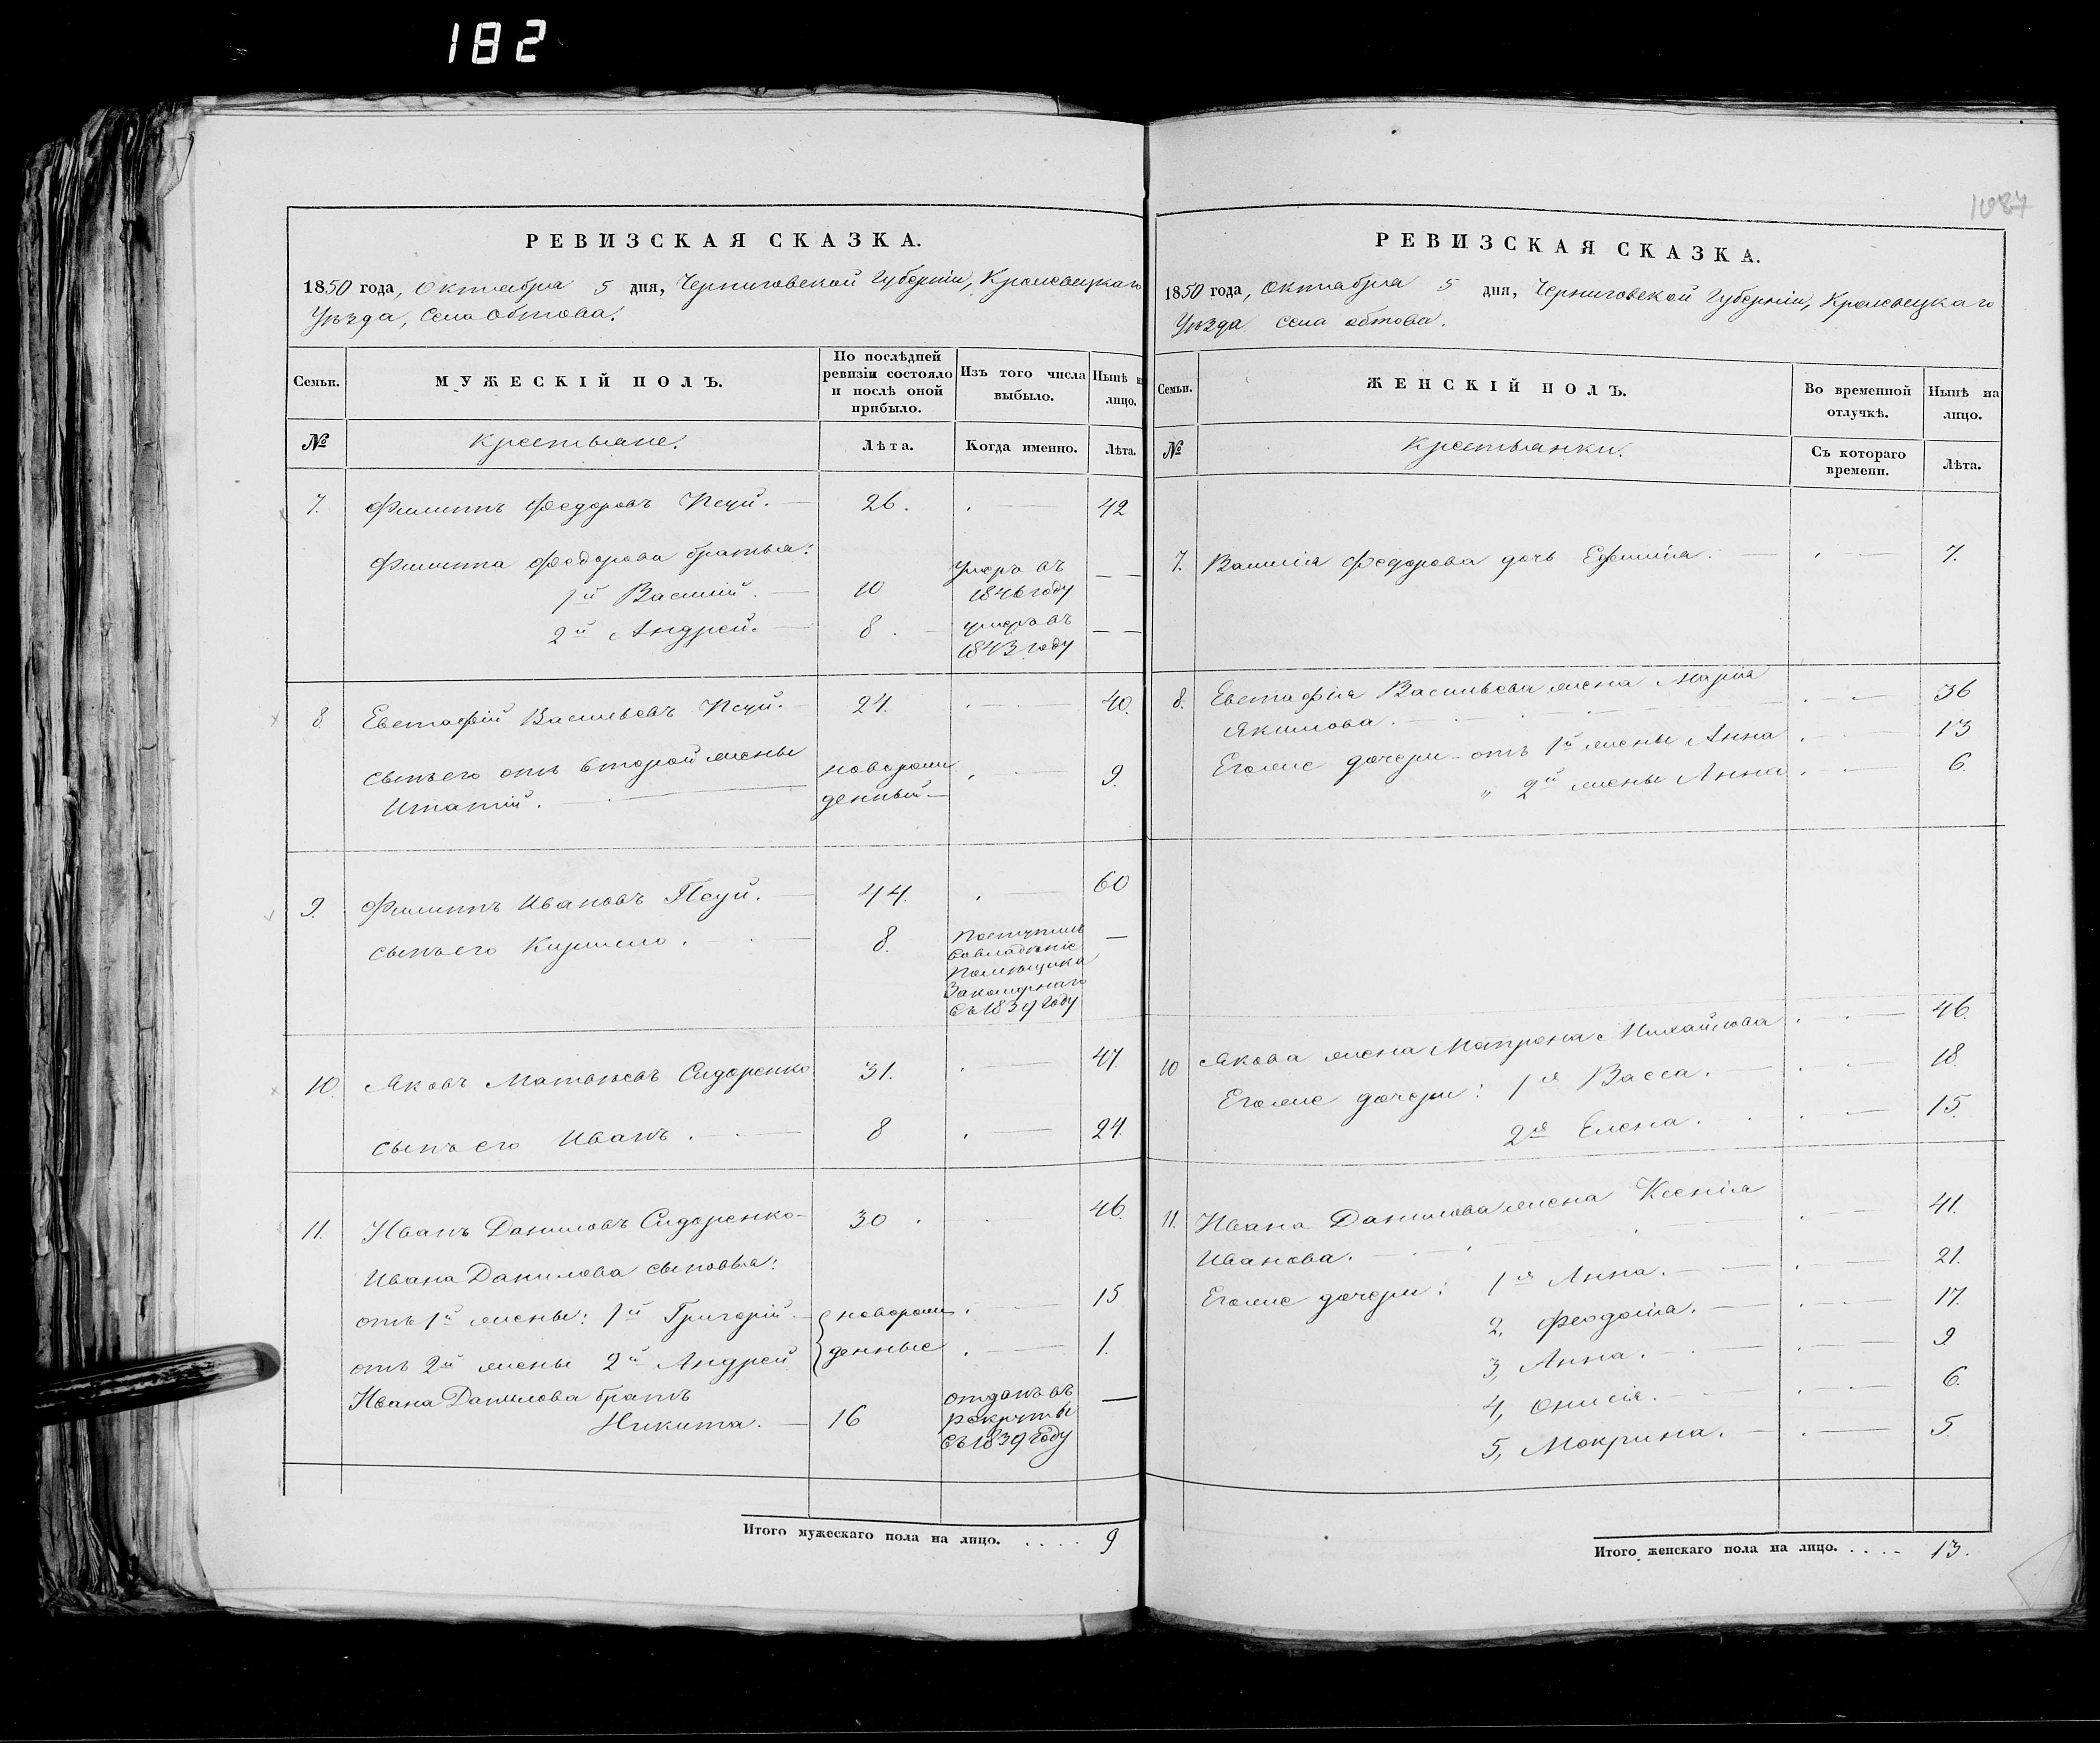 182
РЕВИЗСКАЯ СКАЗКА.
1850 года, Октября 5 дня, Черниговской Губерніи, Кролевецкаго
Уѣзда, Села Обтова.
Семьи.
МУЖЕСКІЙ ПОЛЪ.
По послѣдней ревизіи состояло и послѣ оной прибыло.
Изъ того числа выбыло.
Нынѣ н лицо.
№
Крестьяне.
Лѣта.
Когда именно.
Лѣта.
7. Филиппъ Федоровъ Псуй. 26. 42
Филиппа Федорова братья:
1й Василій. 10 Умеръ въ 1846 году
2й Андрей. 8 умеръ въ 1843 году
8 Евстафій Васильевъ Псуй. 24. 40.
Сынъ его отъ второй жены новорож 9.
Игнатій. денный
9. Филиппъ Ивановъ Псуй. 44. 60
сынъ его Кирило. 8. Поступилъ
во владѣніе
Помѣщика
съ 1839 году
10. Яковъ Матвѣевъ Сидоренко 31. 47.
сынъ его Иванъ. 8 24.
11. Иванъ Даниловъ Сидоренко 30 46.
Ивана Данилова сыновья:
отъ 1й жены: 1й Григорій новорож 15
отъ 2й жены 2й Андрей денные 1.
Ивана Данилова братъ
Никита. 16 отданъ въ
рекруты
съ 1839 году
Итого мужескаго пола на лицо. . . . . 9
1027
РЕВИЗСКАЯ СКАЗКА.
1850 года, Октября 5 дня, Черниговской Губерніи, Кролевецкаго
Уѣзда села обтова.
Семьи.
ЖЕНСКІЙ ПОЛЪ.
Во временной отлучкѣ.
Нынѣ на лицо.
№
Крестьянки.
Съ котораго времени.
Лѣта.
7. Василія Федорова дочь Ефимія. 7.
8. Евстафія Васильева жена Марія 36
Якимова.
Его же дочери отъ 1й жены Анна 13
" 2й жены Анна 6.
10 Якова жена Матрена Михайлова 46.
Его же дочери: 1я Васса. 18.
2я Елена. 15.
11. Ивана Данилова жена Ксенія 41.
Иванова.
Его же дочери: 1я Анна. 21.
2, Феодосія. 17.
3, Анна. 9
4, Онисія. 6.
5, Мокрина. 5.
Итого женскаго пола на лицо. . . . . 13.